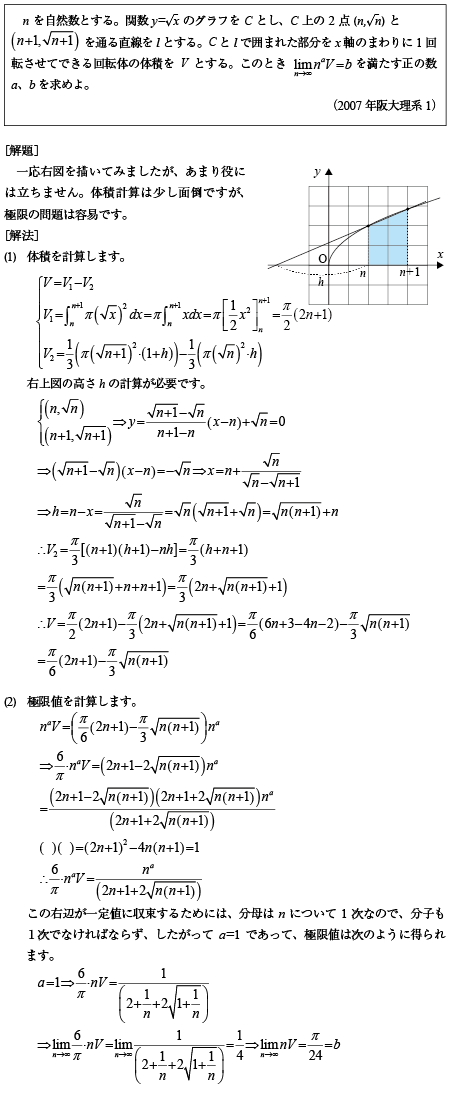 nを自然数とする。関数y=√xのグラフをCとし、C上の2点(n,√n)と
(n+1,√(n+1))を通る直線をlとする。Cとlで囲まれた部分をx軸のまわりに1回
転させてできる回転体の体積をVとする。このとき lim[n→∞] n^a V=b を満たす正の数
a、bを求めよ。
(2007年阪大理系1)
[解題]
一応右図を描いてみましたが、あまり役に
は立ちません。体積計算は少し面倒ですが、
極限の問題は容易です。
y
x
O
h
n
n+1
[解法]
(1) 体積を計算します。
V=V₁−V₂
V₁=∫[n→n+1]π(√x)²dx=π∫[n→n+1]xdx=π[1/2 x²][n→n+1]=π/2(2n+1)
V₂=1/3(π(√(n+1))²·(1+h))−1/3(π(√n)²·h)
右上図の高さhの計算が必要です。
{(n,√n)
(n+1,√(n+1)) ⇒y=(√(n+1)−√n)/(n+1−n) (x−n)+√n=0
⇒(√(n+1)−√n)(x−n)=−√n⇒x=n+√n/(√n−√(n+1))
⇒h=n−x=√n/(√(n+1)−√n)=√n(√(n+1)+√n)=√(n(n+1))+n
∴V₂=π/3[(n+1)(h+1)−nh]=π/3(h+n+1)
=π/3(√(n(n+1))+n+n+1)=π/3(2n+√(n(n+1))+1)
∴V=π/2(2n+1)−π/3(2n+√(n(n+1))+1)=π/6(6n+3−4n−2)−π/3√(n(n+1))
=π/6(2n+1)−π/3√(n(n+1))
(2) 極限値を計算します。
n^a V=(π/6(2n+1)−π/3√(n(n+1)))n^a
⇒6/π·n^a V=(2n+1−2√(n(n+1)))n^a
=(2n+1−2√(n(n+1)))(2n+1+2√(n(n+1)))n^a/(2n+1+2√(n(n+1)))
( )( )=(2n+1)²−4n(n+1)=1
∴6/π·n^a V=n^a/(2n+1+2√(n(n+1)))
この右辺が一定値に収束するためには、分母はnについて1次なので、分子も
1次でなければならず、したがってa=1であって、極限値は次のように得られ
ます。
a=1⇒6/π·nV=1/(2+1/n+2√(1+1/n))
⇒lim[n→∞]6/π·nV=lim[n→∞]1/(2+1/n+2√(1+1/n))=1/4⇒lim[n→∞]nV=π/24=b